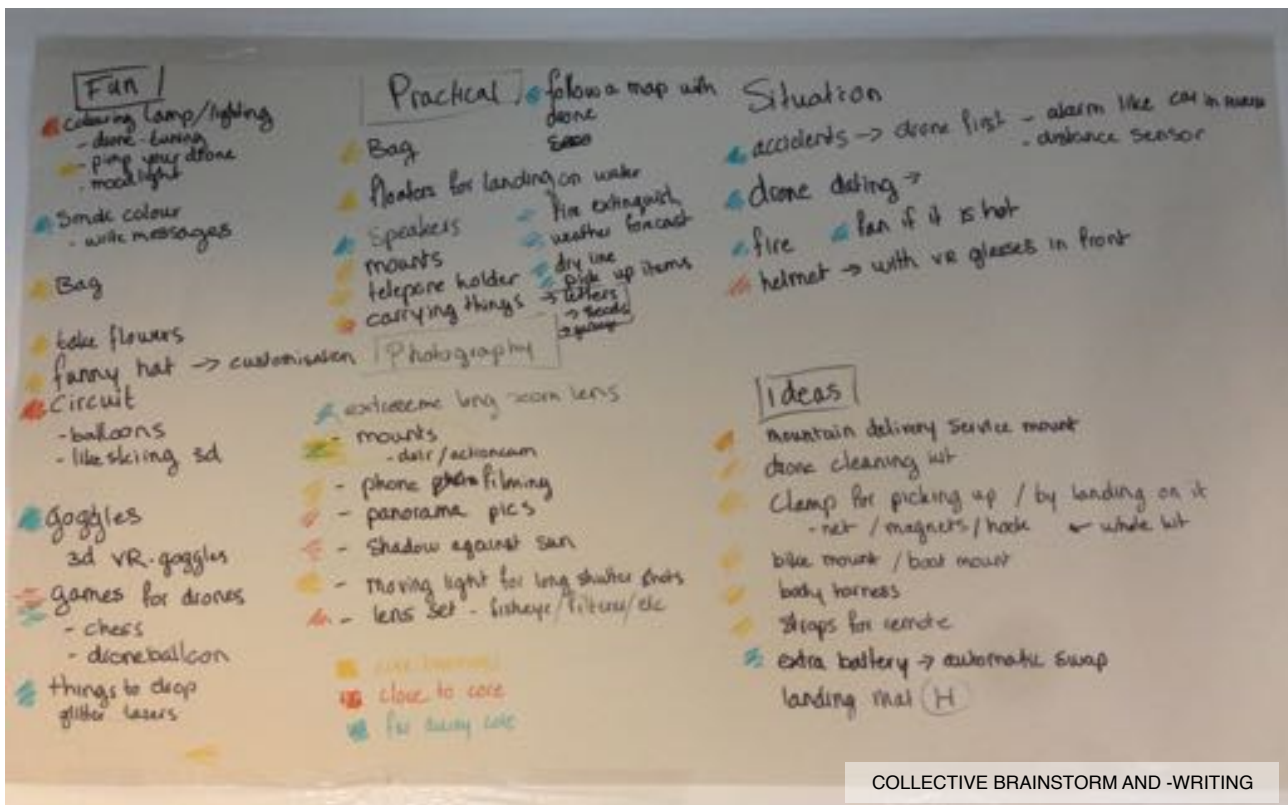 Fun
colouring lamp/lighting
- drone-tuning
- pimp your drone
- moodlight
Smoke colour
- write messages
Bag
take flowers
funny hat → customisation
Circuit
- balloons
- like skiing 3d
goggles
3d VR-goggles
games for drones
- chess
- droneballoon
things to drop
glitter lasers
Practical
follow a map with
drone
Bag
floaters for landing on water
Speakers
mounts
telepone holder
carrying things → letters
→ seeds
fire extinguish
weather forecast
dry line
pick up items
Photography
extreeme long zoom lens
- mounts
- dslr/actioncam
- phone filming
- panorama pics
- Shadow against sun
- moving light for long shutter shots
- lens set - fisheye/filters/etc
close to core
far away core
Situation
accidents → drone first - alarm like car in reverse
- distance sensor
drone dating →
fire
fan if it is hot
helmet → with VR glasses in front
Ideas
mountain delivery service mount
drone cleaning kit
Clamp for picking up / by landing on it
- net / magnets / hook ← whole kit
bike mount / boat mount
body harness
Straps for remote
extra battery → automatic swap
landing mat H
COLLECTIVE BRAINSTORM AND -WRITING